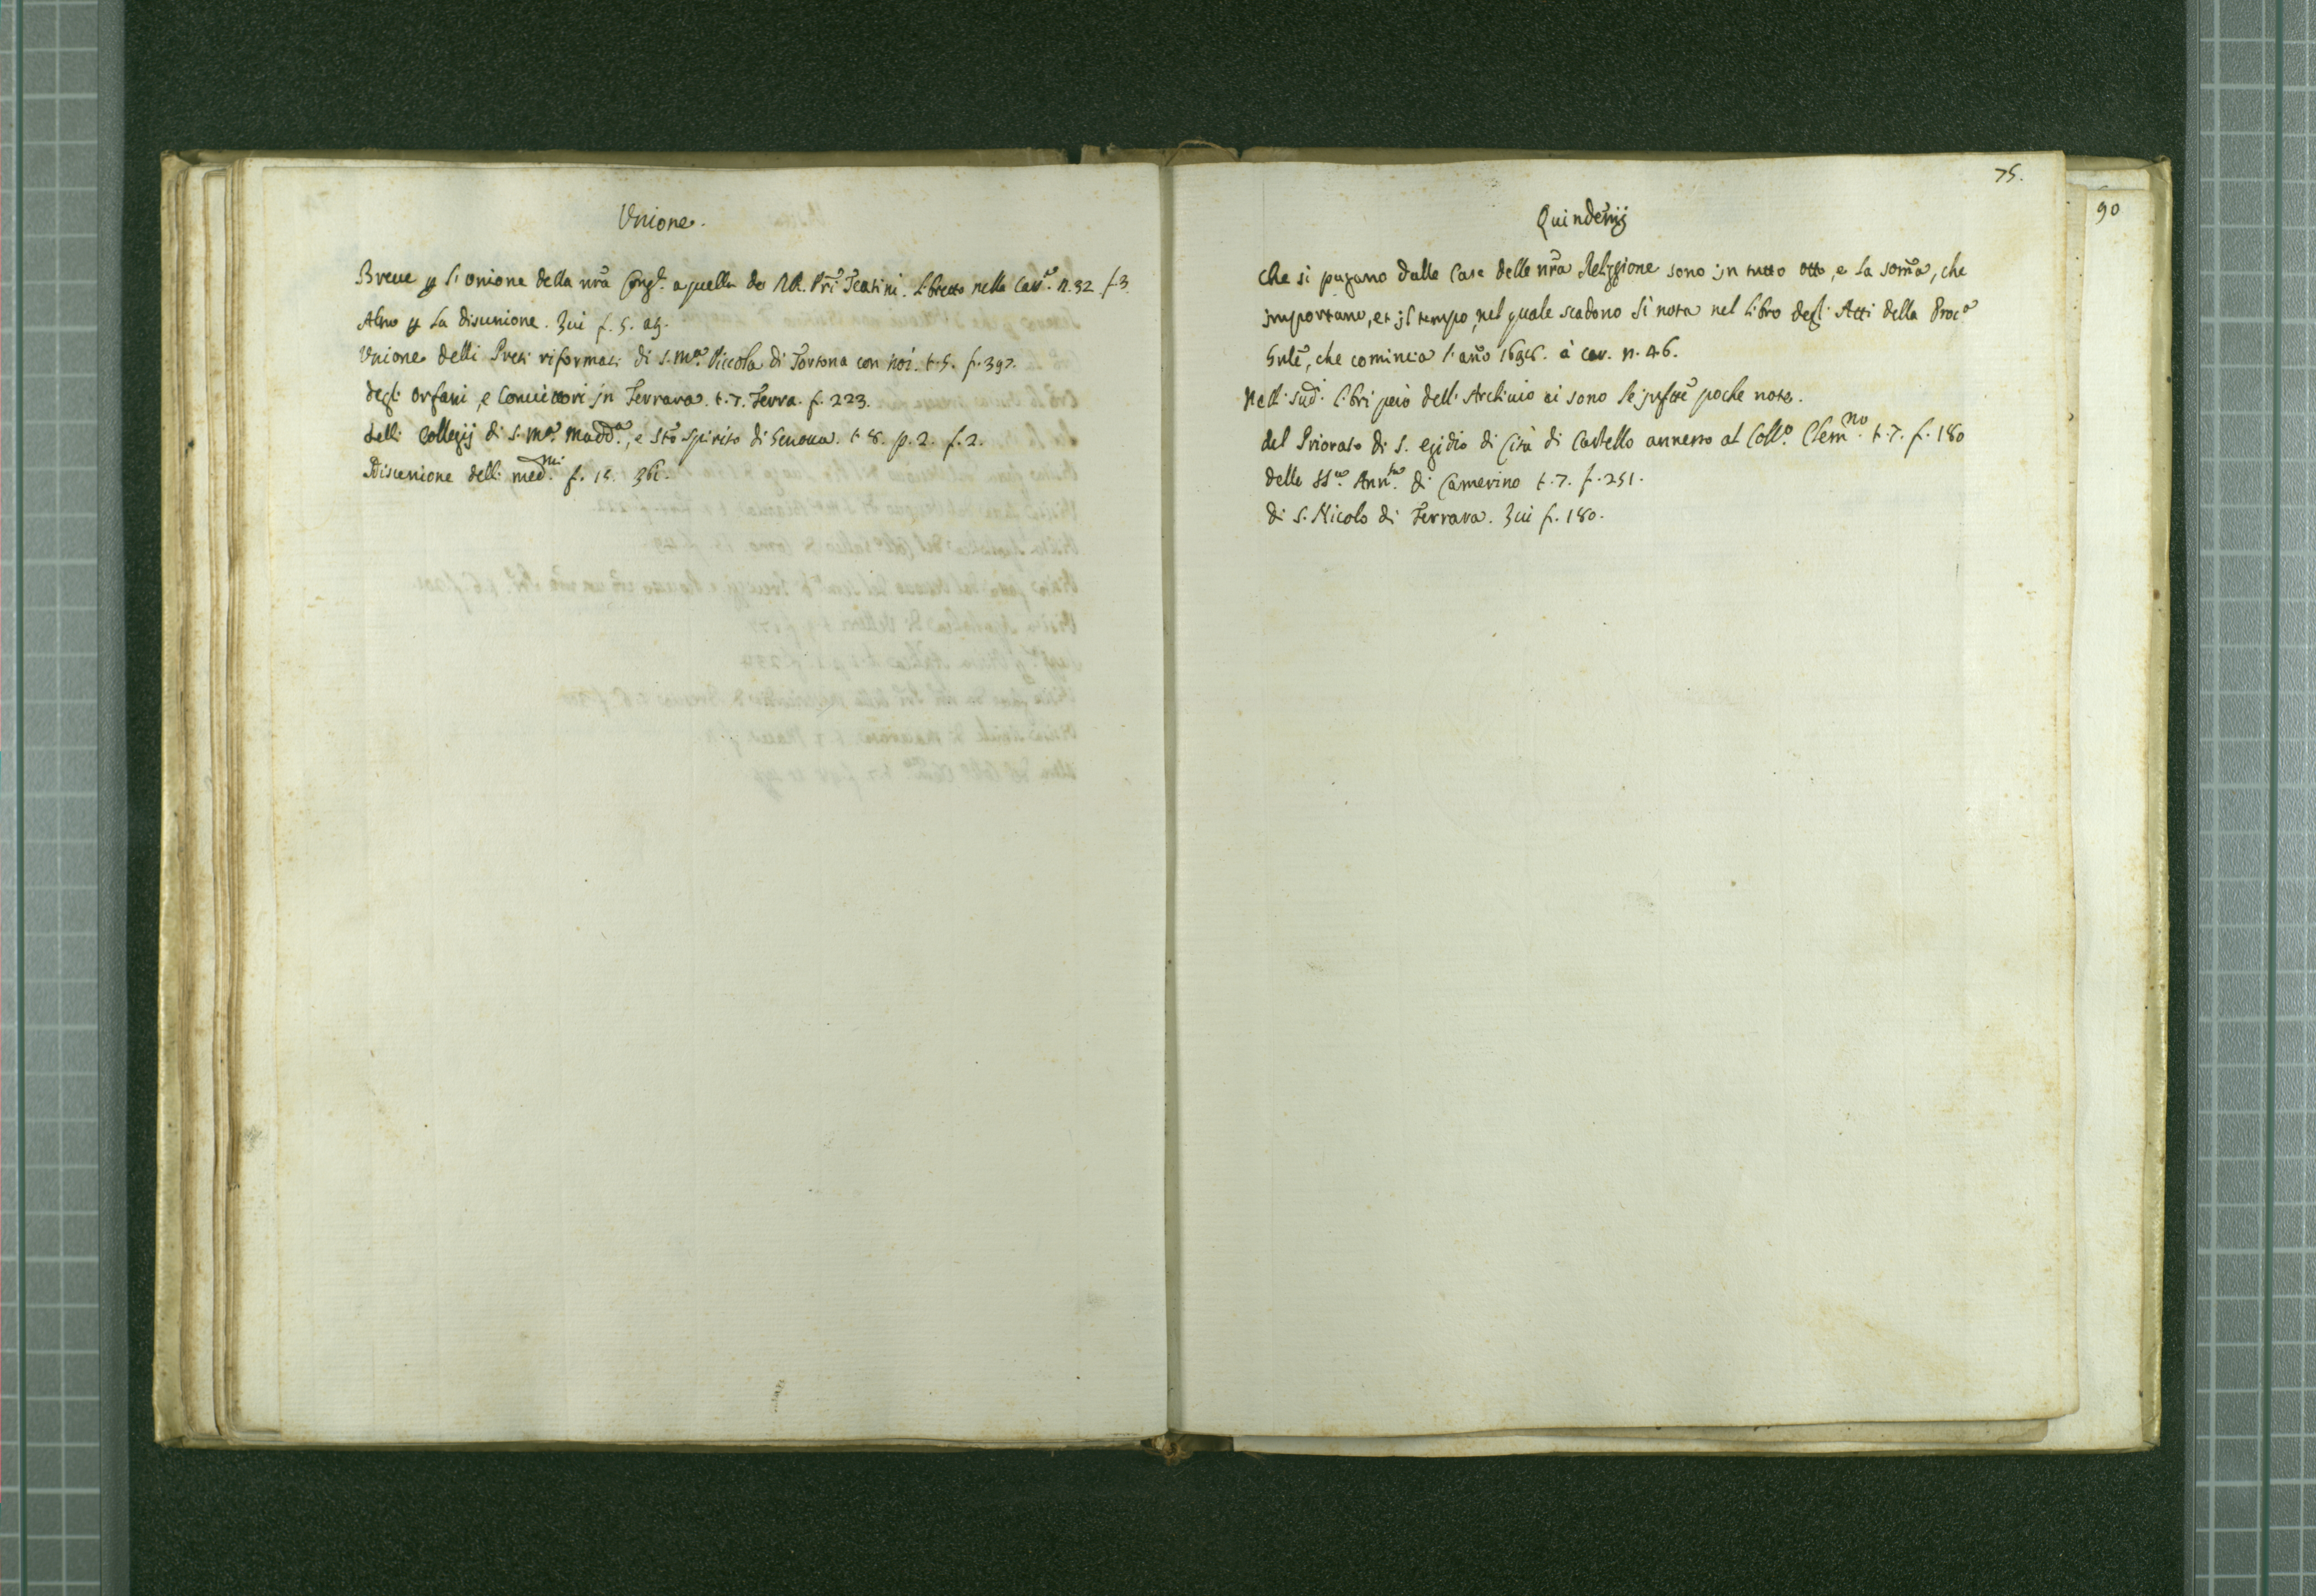 Vnione.
Breue p l'unione della nra Cong.e a quella de RR. Pri Teatini. Libretto nella Cas.a n. 32 f. 3.
Altro p la disunione. Iui f. 5. a 9.
Vnione delli Preti riformati di S. M.a Piccola di Tortona con noi. t. 5. f. 397.
degli orfani, e Conuittori jn Ferrara. t. 7. Ferra. f. 223.
delli Collegij di S. M.a Madd.a, e Sto Spirito di Genoua. t. 8. p. 2. f. 2.
Disunione delli med.mi f. 15. 36.
75.
90
Quindenij
Che si pagano dalle Case della nra Religione sono jn tutto otto, e la soma, che
jmportano, et jl tempo, nel quale scadono si nota nel Libro degl'Atti della Proc.a
Gnle, che comincia l'ano à car. n. 46.
Nelli sud.i libri però dell'Archiuio ui sono le jnfrte poche note.
del Priorato di S. Egidio di Cità di Castello annesso al Coll.o Clem.no t. 7. f. 180
della SS.a Ann.ta di Camerino t. 7. f. 251.
di S. Nicolo di Ferrara. Iui f. 180.